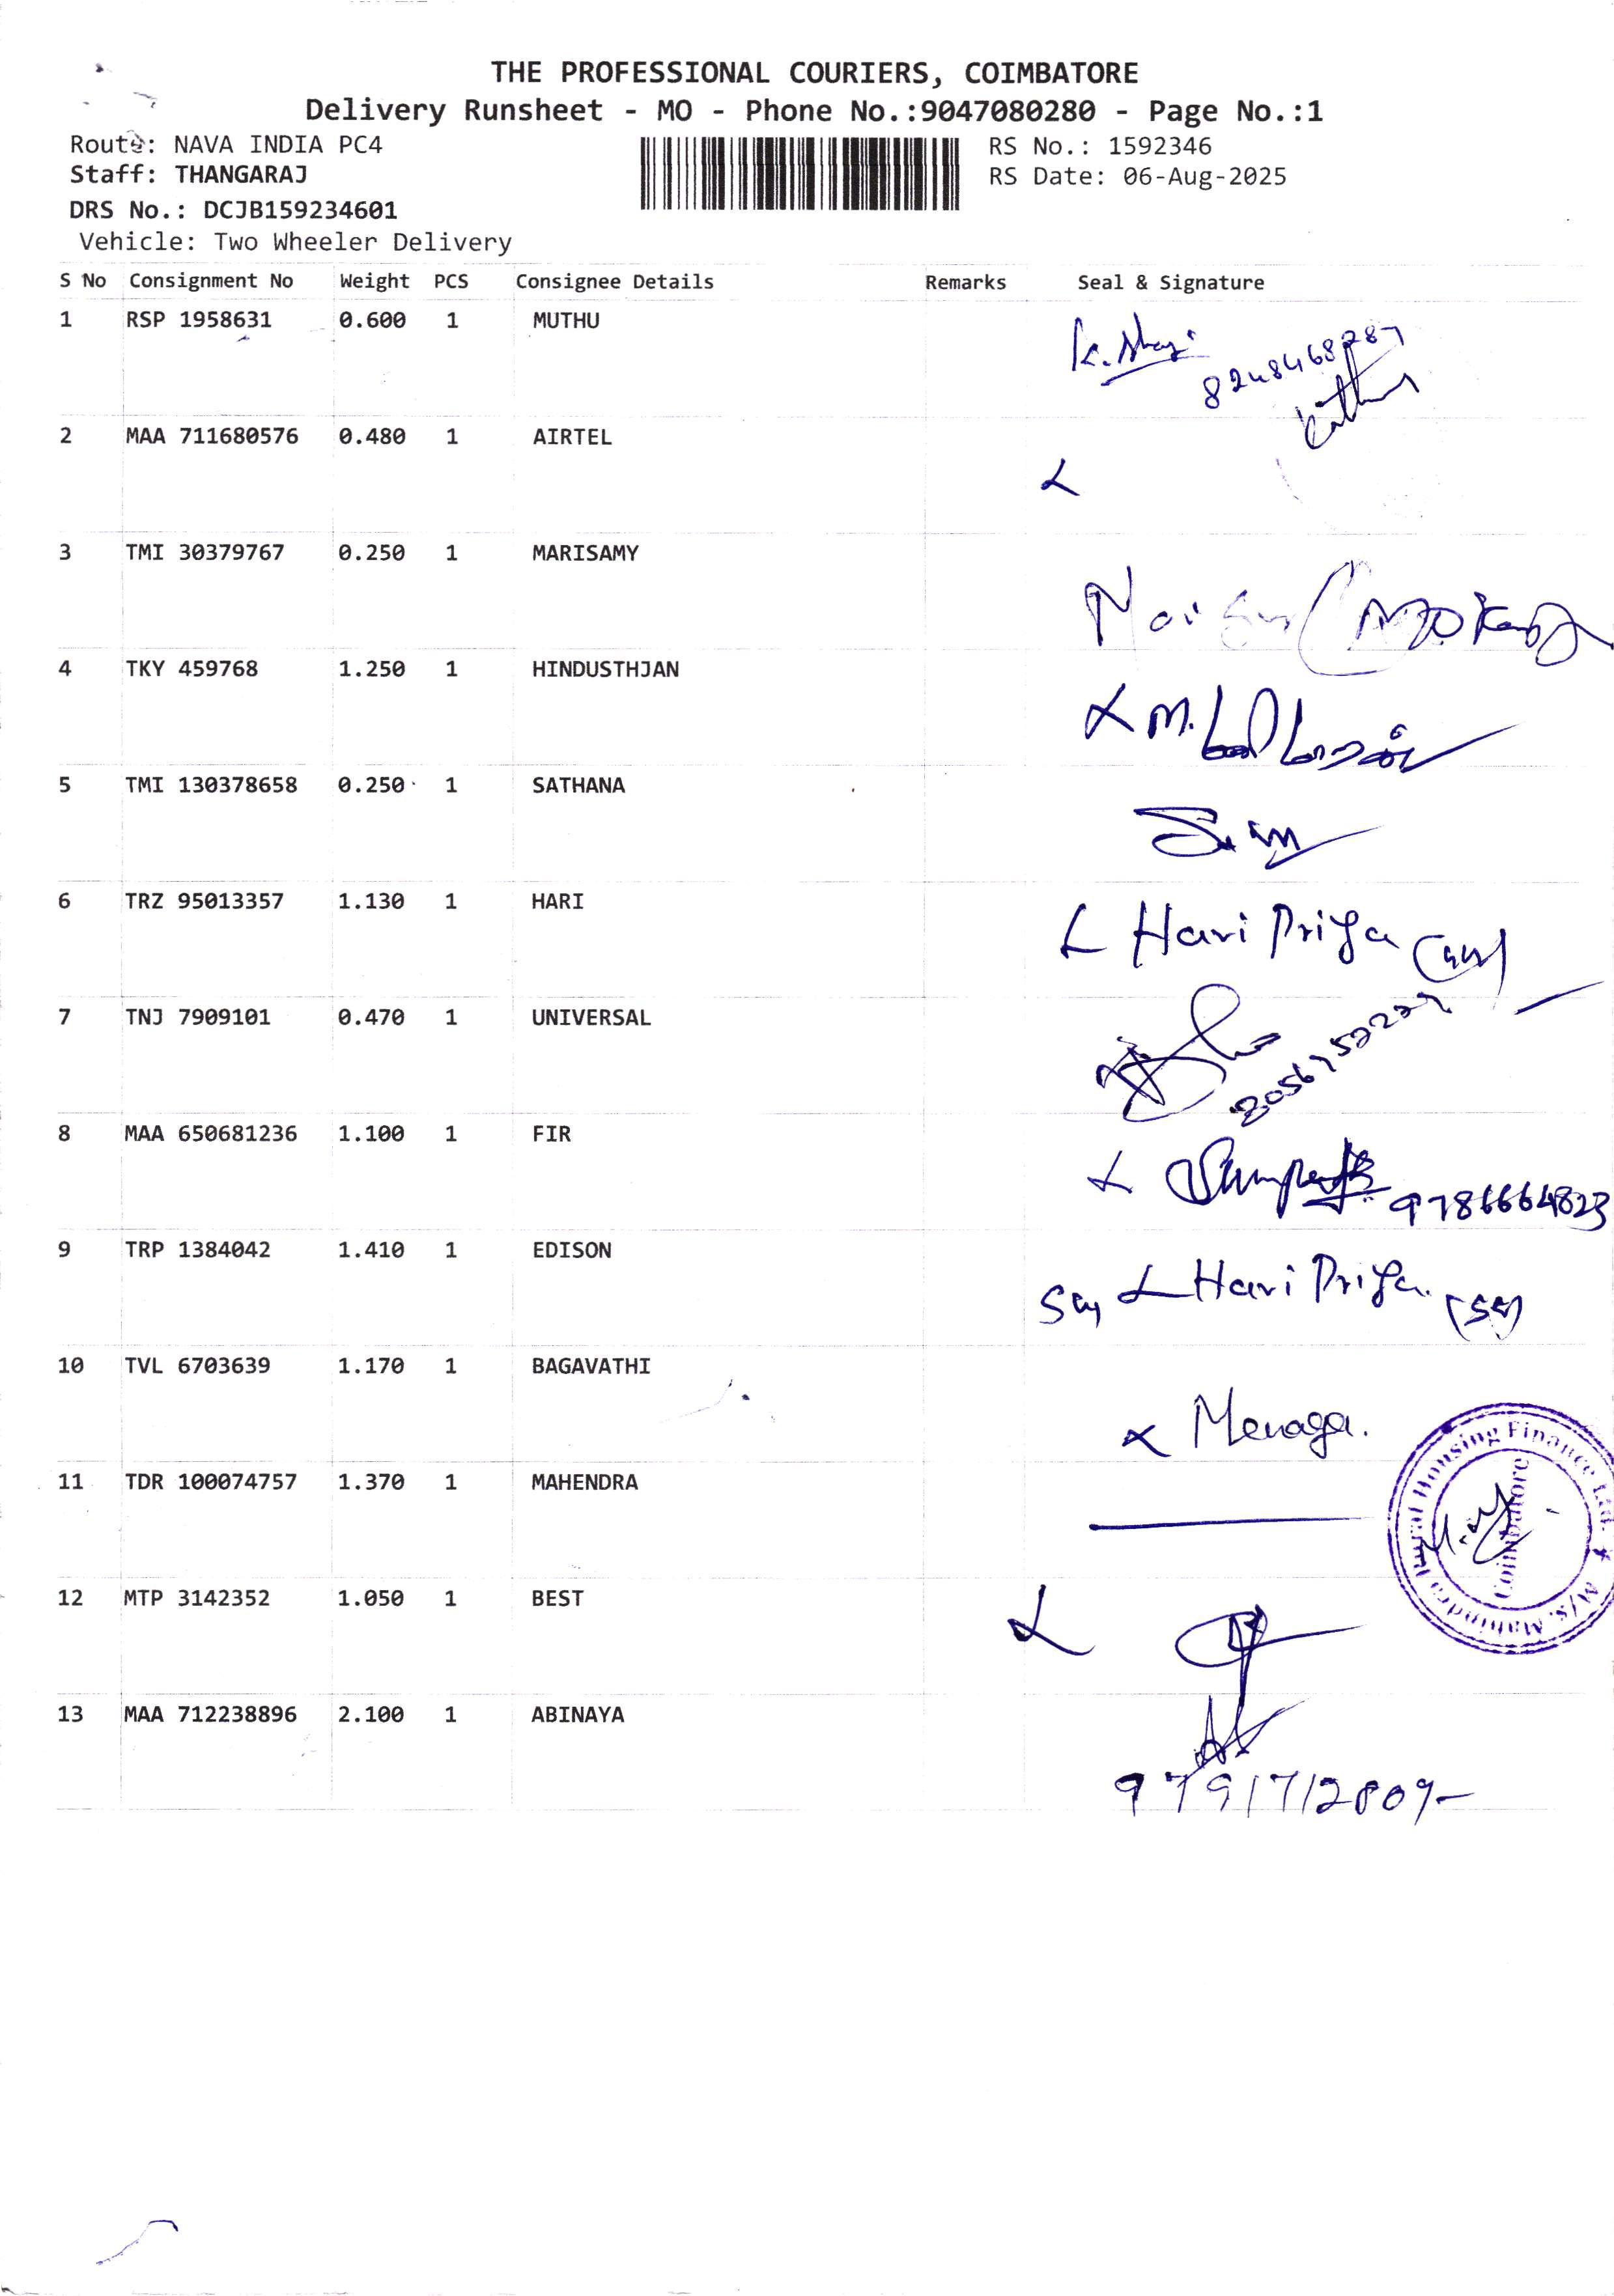 THE PROFESSIONAL COURIERS, COIMBATORE
Delivery Runsheet - MO - Phone No.:9047080280 - Page No.:1
Route: NAVA INDIA PC4
RS No.: 1592346
Staff: THANGARAJ
RS Date: 06-Aug-2025
DRS No.: DCJB159234601
Vehicle: Two Wheeler Delivery
S No Consignment No Weight PCS Consignee Details Remarks Seal & Signature
1 RSP 1958631 0.600 1 MUTHU
8248468787
2 MAA 711680576 0.480 1 AIRTEL
3 TMI 30379767 0.250 1 MARISAMY
4 TKY 459768 1.250 1 HINDUSTHJAN
5 TMI 130378658 0.250 1 SATHANA
6 TRZ 95013357 1.130 1 HARI
Hari Priya
7 TNJ 7909101 0.470 1 UNIVERSAL
8 MAA 650681236 1.100 1 FIR
9786664823
9 TRP 1384042 1.410 1 EDISON
Hari Priya.
10 TVL 6703639 1.170 1 BAGAVATHI
Menaga.
11 TDR 100074757 1.370 1 MAHENDRA
M/s. Mahindra Rural Housing Finance Ltd.
Coimbatore
12 MTP 3142352 1.050 1 BEST
13 MAA 712238896 2.100 1 ABINAYA
9791712809